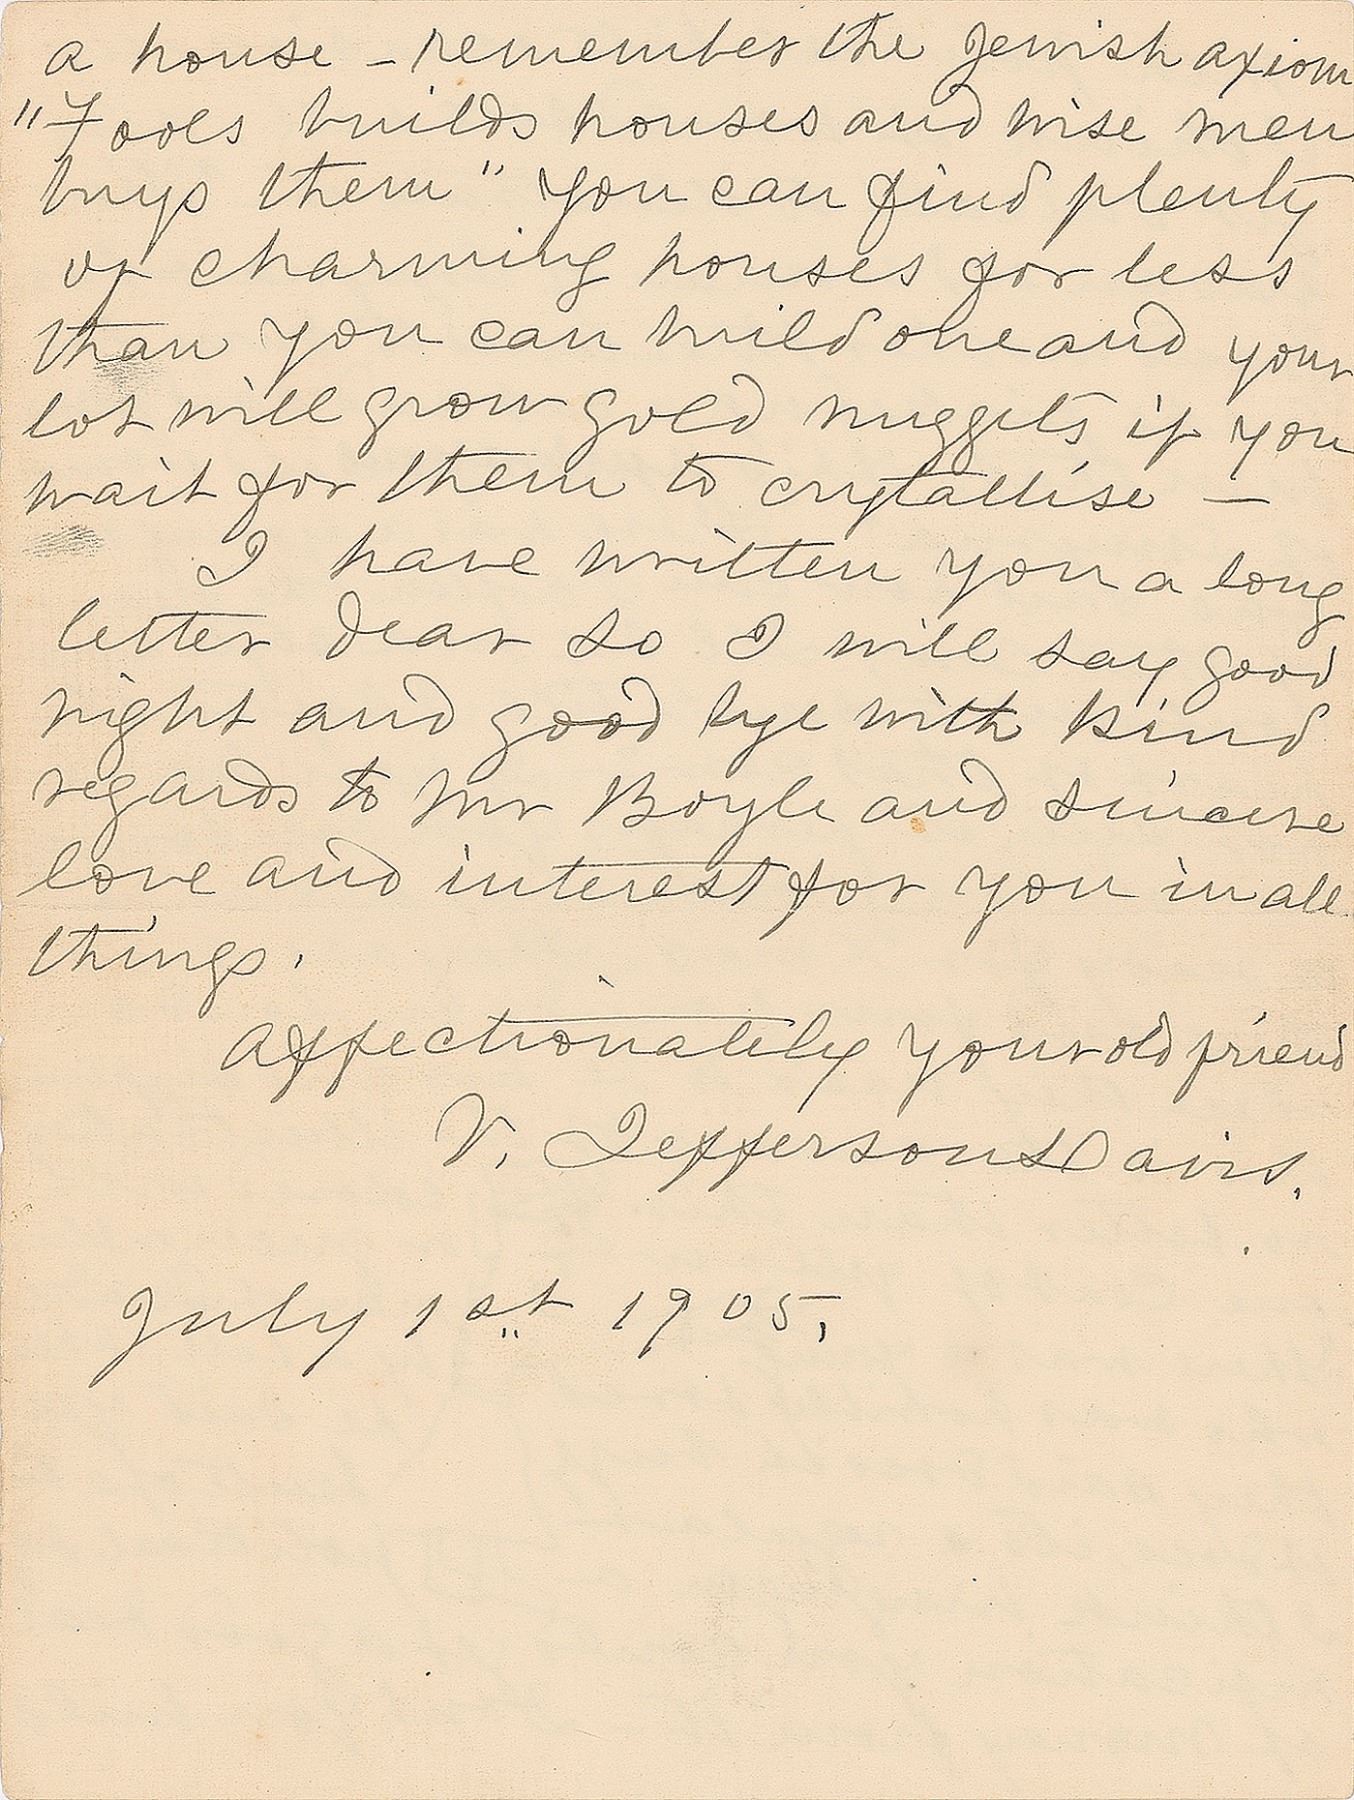 a house – remember the Jewish axiom
"Fools builds houses and wise men
buys them" You can find plenty
of charming houses for less
than you can build one and your
lot will grow gold nuggets if you
wait for them to crytallise —
I have written you a long
letter dear so I will say good
night and good bye with kind
regards to Mr Boyle and sincere
love and interest for you in all
things.
Affectionately your old friend
V. Jefferson Davis.
July 1st 1905.